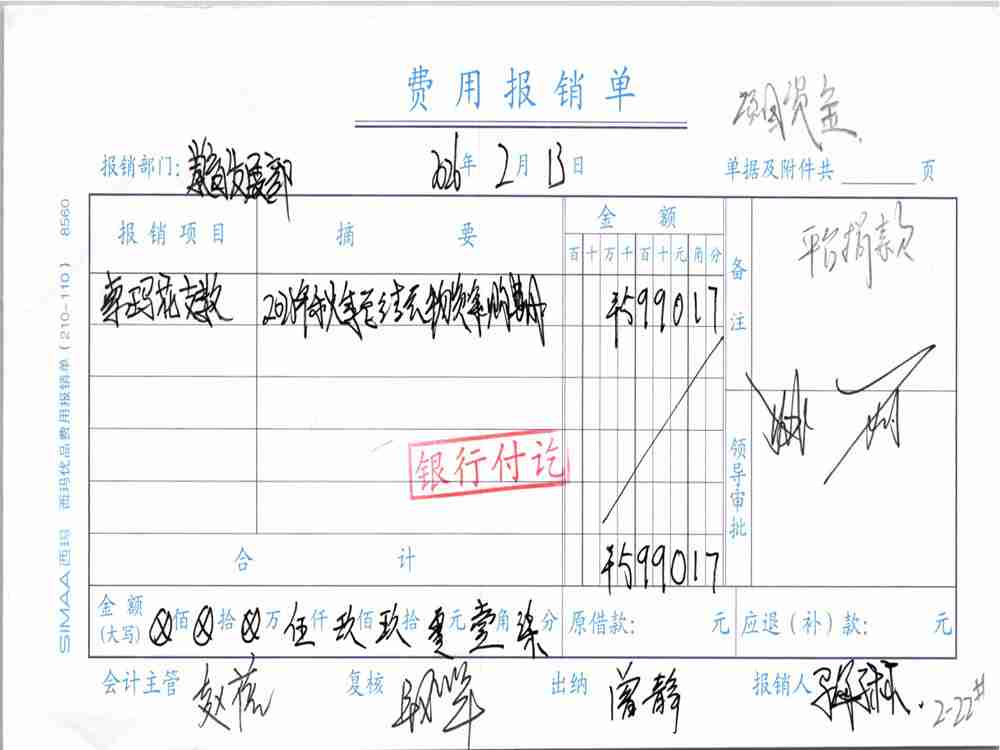 费用报销单
项目资金
报销部门: 教育发展部 2026年 2月 13日 单据及附件共 页
报销项目 摘要 金额 备注
百十万千百十元角分
平台捐款
¥599017
银行付讫
领导审批
合计 ¥599017
金额(大写) ⊗佰⊗拾⊗万伍仟玖佰玖拾零元壹角柒分 原借款: 元 应退(补)款: 元
会计主管 复核 出纳 曾静 报销人
2-22#
SIMAA 西玛 西玛优品费用报销单(210-110) 8560